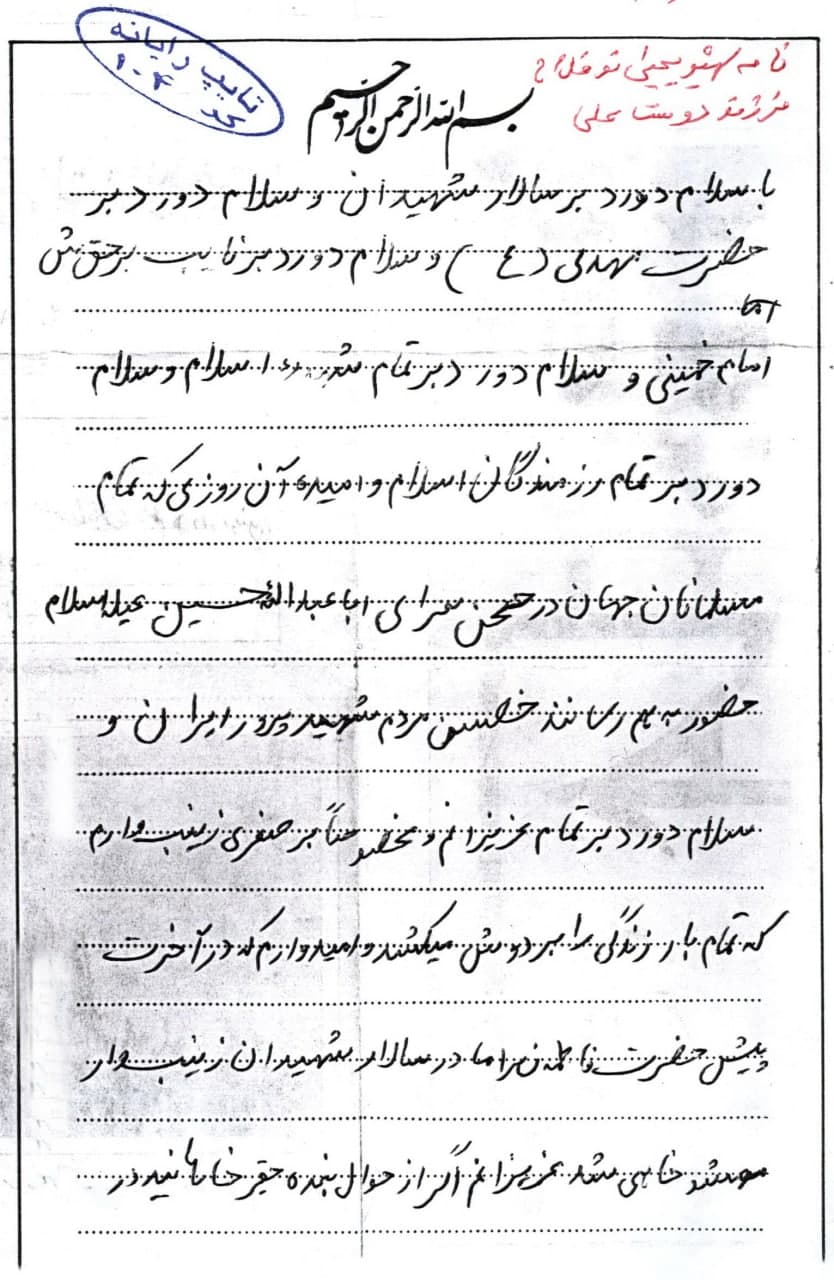 نامه شهید یحیی توفلاح
فرزند دوست علی
تایپ رایانه
بسم الله الرحمن الرحیم
با سلام دورد بر سالار شهیدان و سلام دورد بر
حضرت مهدی (ع) و سلام دورد بر نایب برحقش
اما
امام خمینی و سلام دورد بر تمام اسلام و سلام
دورد بر تمام رزمندگان اسلام و امیده آن روزی که تمام
مسلمانان جهان در صحن سرای ابا عبدالله حسین علیه السلام
حضور به هم رسانند مردم شهید پرور ایران و
سلام دورد بر تمام عزیزانم و مخصوصاً بر صغری زینب وارم
که تمام بار زندگی را بر دوش میکشند و امیدوارم که در آخرت
پیش حضرت فاطمه زهرا مادر سالار شهیدان زینب وار
خاهی شد عزیزانم اگر از حوال بنده حقیر خاهانید در